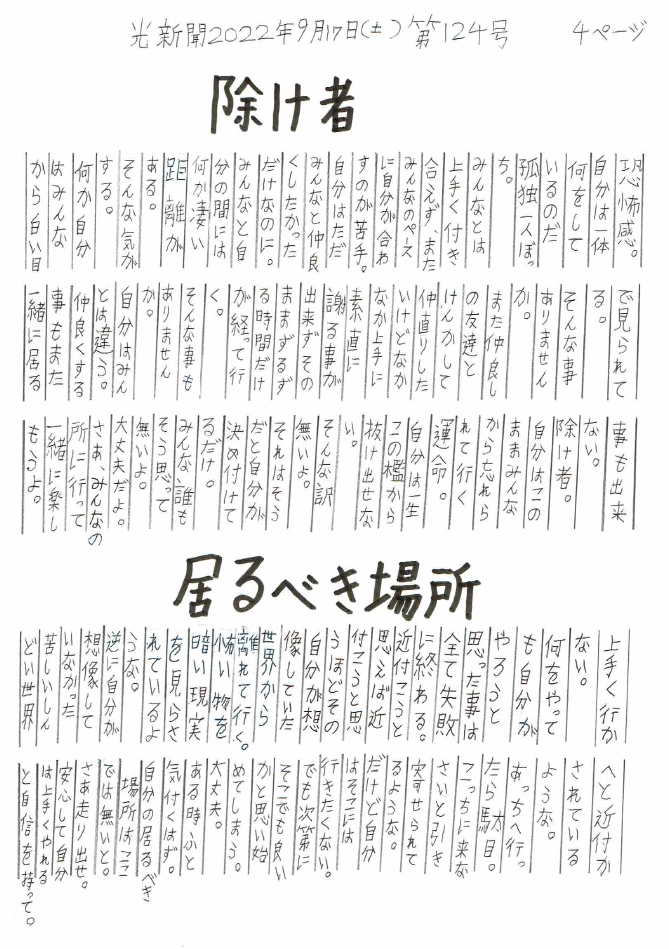 光新聞2022年9月17日(土)第124号 4ページ
除け者
恐怖感。
自分は一体
何をして
いるのだ
孤独一人ぼっ
ち。
みんなとは
上手く付き
合えず、また
みんなのペース
に自分が合わ
すのが苦手。
自分はただ
みんなと仲良
くしたかった
だけなのに。
みんなと自
分の間には
何か凄い
距離が
ある。
そんな気が
する。
何か自分
はみんな
から白い目
で見られて
る。
そんな事
ありません
か。
また仲良し
の友達と
けんかして
仲直りした
いけどなか
なか上手に
素直に
謝る事が
出来ずその
ままずるず
る時間だけ
が経って行
く。
そんな事も
ありません
か。
自分はみん
とは違う。
仲良くする
事もまた
一緒に居る
事も出来
ない。
除け者。
自分はこの
ままみんな
から忘れら
れて行く
運命。
自分は一生
この檻から
抜け出せな
い。
そんな訳
無いよ。
それはそう
だと自分が
決め付けて
るだけ。
みんな誰も
そう思って
無いよ。
大丈夫だよ。
さあ、みんなの
所に行って
一緒に楽し
もうよ。
居るべき場所
上手く行か
ない。
何をやって
も自分が
やろうと
思った事は
全て失敗
に終わる。
近付こうと
思えば近
付こうと思
うほどその
自分が想
像していた
世界から
離れて行く。
怖い物を
暗い現実
を見らさ
れているよ
うな。
逆に自分が
想像して
いなかった
苦しいしん
どい世界
へと近付か
されている
ような。
あっちへ行っ
たら駄目。
こっちに来な
さいと引き
寄せられて
るような。
だけど自分
はそこには
行きたくない。
でも次第に
そこでも良い
かと思い始
めてしまう。
大丈夫。
ある時ふと
気付くはず。
自分の居るべき
場所はここ
では無いと。
さあ走り出せ。
安心して自分
は上手くやれる
と自信を持って。